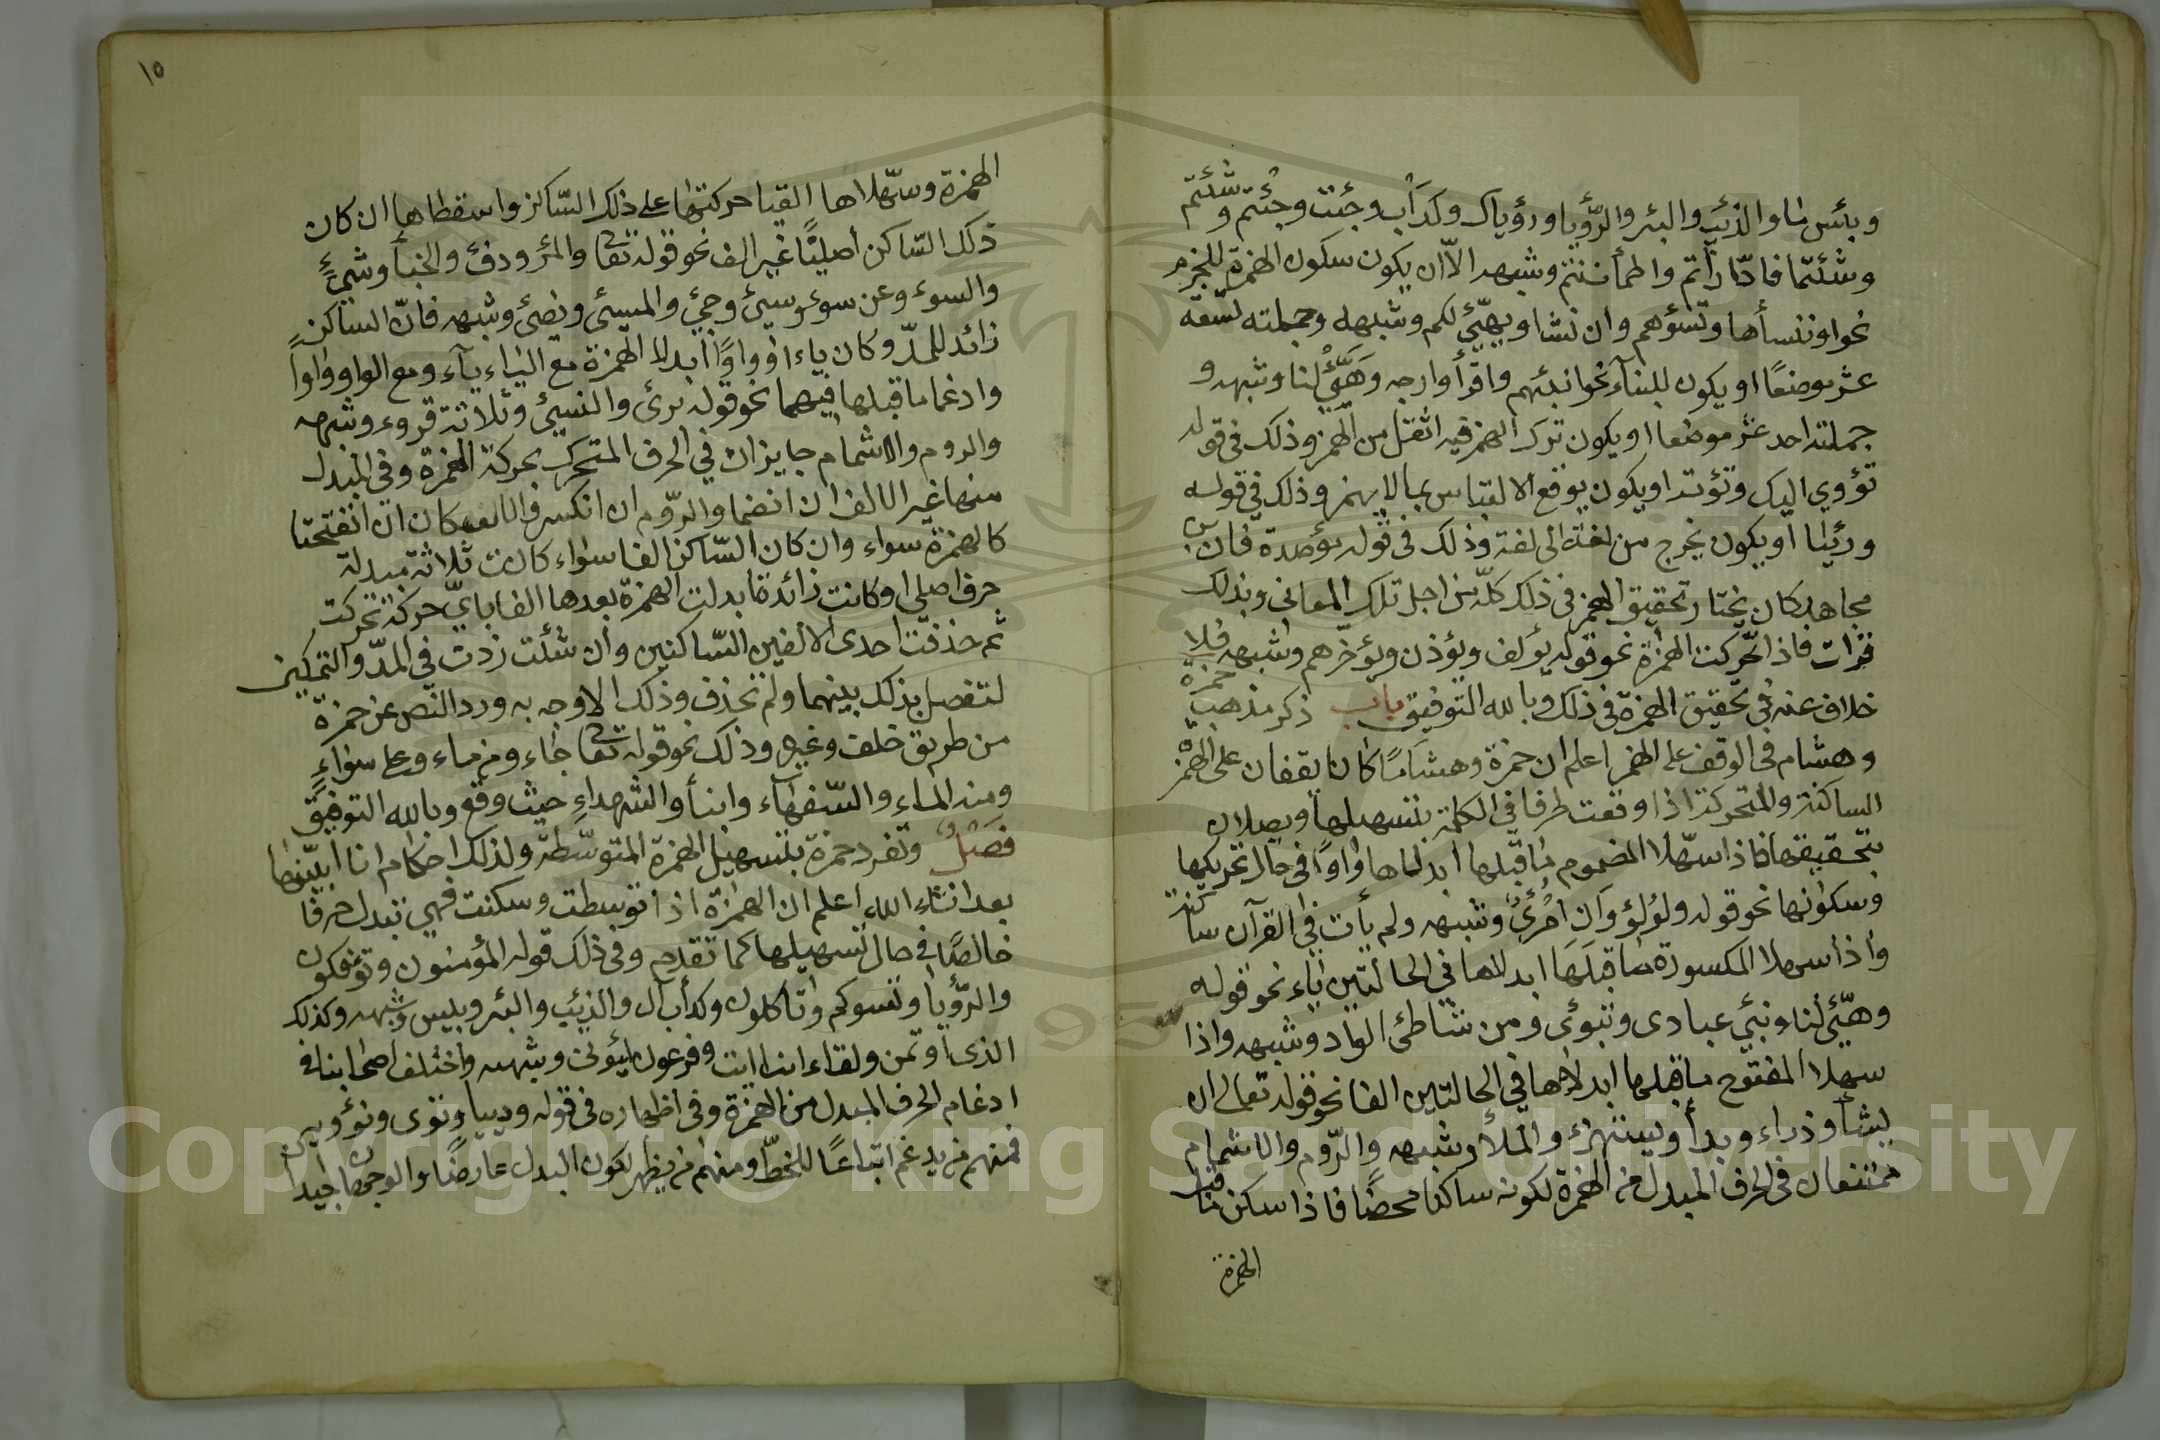 وبئس ما والذئب والبئر والرؤيا ورؤياك وكدأب وجئت وجئتم وشئتم
وشئتما فادّارأتم واطمأننتم وشبهه الاّ ان يكون سكون الهمزة للجزم
نحو اوننسأها وتسؤهم وان نشا ويهيّئ لكم وشبهه وجملته تسعه
عشر موضعًا او يكون للبنآء نحو انبئهم واقرأ وارجه وهَيّئْ لنا وشبهه و
جملته احد عشر موضعا او يكون ترك الهمز فيه اثقل من الهمز وذلك في قوله
تؤوي اليك وتؤيه او يكون يوقع الالتباس بما لا يهمز وذلك في قوله
ورئيا او يكون يخرج من لغة الى لغة وذلك في قوله مؤصدة فان ابن
مجاهد كان يختار تحقيق الهمز في ذلك كلّه من اجل تلك المعاني وبذلك
قرات فاذا تحركت الهمزة نحو قوله يؤلف ويؤذن ويؤخرهم وشبهه فلا
خلاف عنه في تحقيق الهمزة في ذلك وبالله التوفيق باب ذكر مذهب حمزة
وهشام في الوقف على الهمز اعلم ان حمزة وهشامًا كانا يقفان على الهمزة
الساكنة والمتحركة اذا وقعت طرفا في الكلمة بتسهيلها ويصلان
بتحقيقها فاذا سهّلا المضموم ما قبلها ابدلاها واوًا في حال تحريكها
وسكونها نحو قوله ولؤلؤ وان امرُؤٌ وشبهه ولم يأت في القرآن ساكنة
واذا سهلا المكسورة ما قبلَهَا ابدلاها في الحالتين ياء نحو قوله
وهيّئ لنا ونبّئ عبادى وتبوئ ومن شاطئ الواد وشبهه واذا
سهلا المفتوح ما قبلها ابدلاها في الحالتين الفا نحو قوله تعالى ان
يشأ وذراء وبدأ ويستهزء والملأ وشبهه والرّوم والاشمام
ممتنعان في الحرف المبدل من الهمزة لكونه ساكنا محضًا فاذا سكن ما قبل
الهمزة
١٥
الهمزة وسهّلاها القيا حركتها على ذلك السّاكن واسقطاها ان كان
ذلك السّاكن اصليًّا غير الف نحو قوله تعا والمرء ودفء والخبأ وشيءٌ
والسوء وعن سوء وسيئ وجئ والمسيئ ويضئ وشبهه فانّ الساكن
زائد للمدّ وكان ياء او واوًا ابدلا الهمزة مع الياء يآء ومع الواو واوا
وادغما ما قبلها فيهما نحو قوله برئ والنسيئ وثلاثة قروء وشبهه
والروم والاشمام جايزان في الحرف المتحرك بحركة الهمزة وفي المبدل
منها غير الالف ان انضما والرّوم ان انكسر والاسكان ان انفتحتا
كالهمزة سواء وان كان السّاكن الفا سواء كانت ثلاثة مبدلة
حرف اصلي او كانت زائدة ابدلت الهمزة بعدها الفا بايّ حركة تحركت
ثم حذفت احدى الالفين السّاكنين وان شئت زدت في المدّ والتمكين
لتفصل بذلك بينهما ولم تحذف وذلك الاوجه به ورد النّص عن حمزة
من طريق خلف وغيره وذلك نحو قوله تعا جاء ومن ماء وعلى سواءٍ
ومنه الماء والسّفهآء وابنأ والشهداءِ حيث وقع وبالله التوفيق
فصل وتفرد حمزة بتسهيل الهمزة المتوسّطة ولذلك احكام انا ابيّنها
بعد انشاء الله اعلم ان الهمزة اذا توسطت وسكنت فهي تبدل حرفا
خالصًا في حال تسهيلها كما تقدم وفي ذلك قوله المؤمنون وتؤفكون
والرّؤيا وتسوكم وتاكلون وكدأب آل والذئب والبئر وبئس وشبهه وكذلك
الذى اوتمن ولقاءنا ايت وفرعون ائتوني وشبهه واختلف اصحابنا في
ادغام الحرف المبدل من الهمزة وفي اظهاره في قوله وريا وتؤوى وتؤويه
فمنهم من يدغم اتباعًا للخطّ ومنهم من يظهر لكون البدل عارضًا والوجهان جيدان